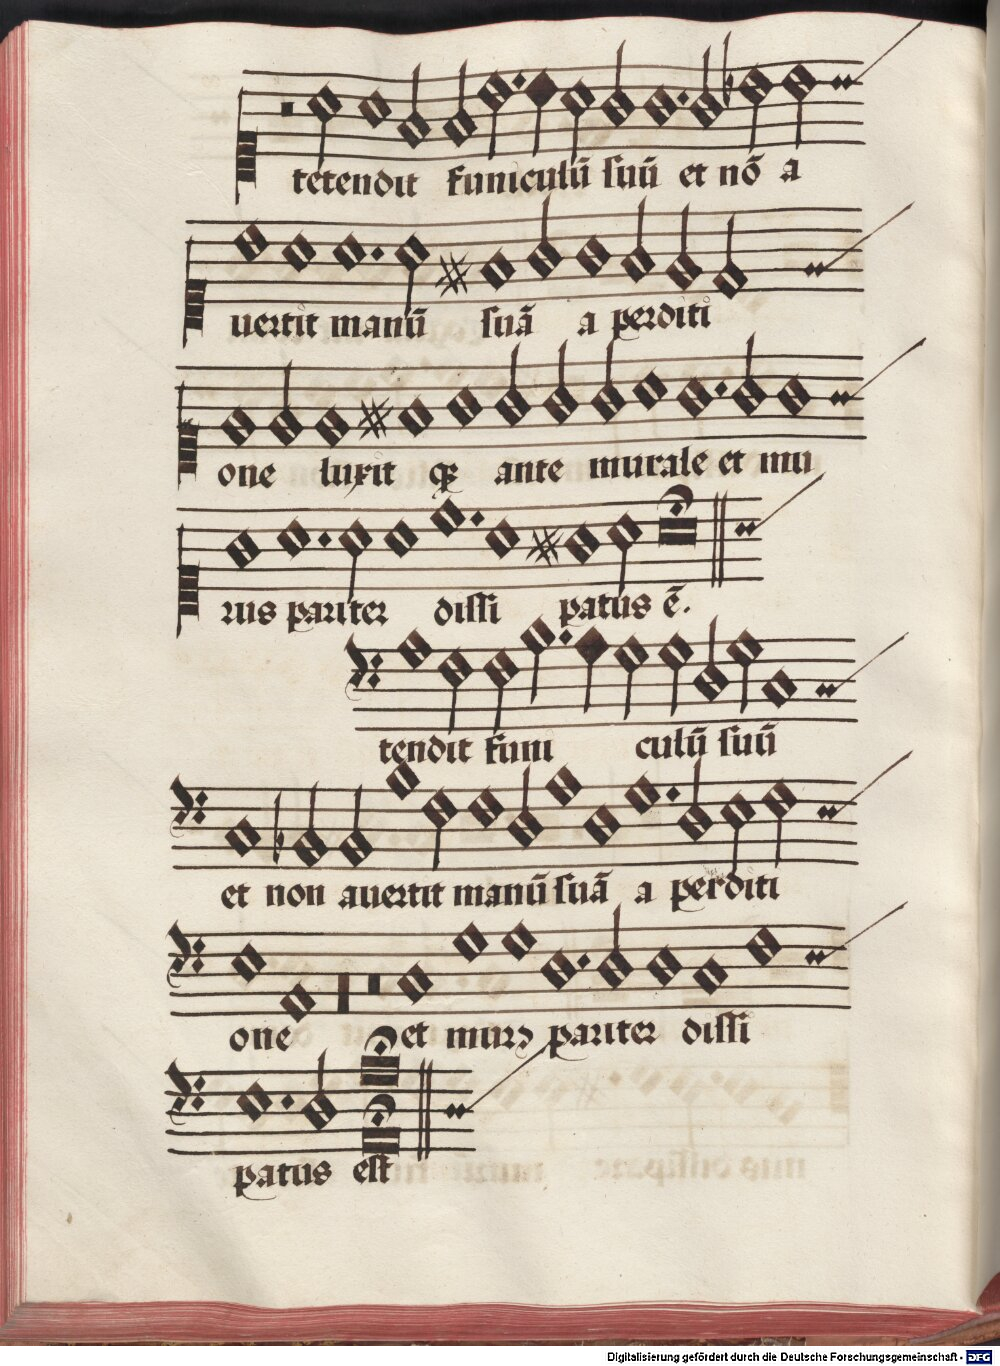 tetendit funiculū suū et nō a
uertit manū suā a perditi
one luxit qꝫ ante murale et mu
rus pariter dissi patus ē.
tendit funi culū suū
et non auertit manū suā a perditi
one et murꝰ pariter dissi
patus est
Digitalisierung gefördert durch die Deutsche Forschungsgemeinschaft - DFG